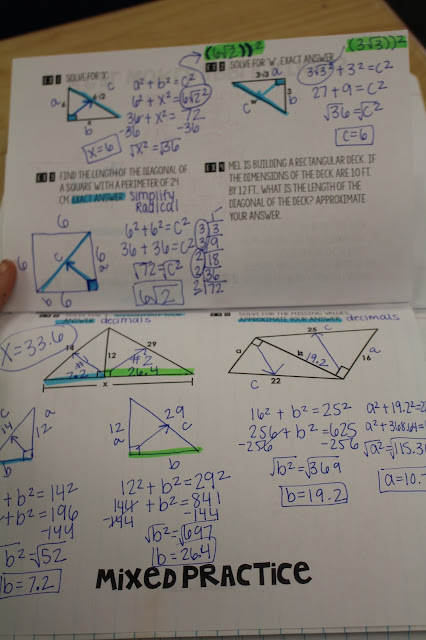 (6√2))²
(3√3))²
EX 1 SOLVE FOR 'X'.
a² + b² = c²
6² + x² = 6√2²
36 + x² = 72
-36 -36
√x² = √36
x = 6
a 6
c
6√2
x
b
EX 2 SOLVE FOR 'W', EXACT ANSWER
3√3 a
3
b
c w
3√3² + 3² = c²
27 + 9 = c²
√36 = √c²
c = 6
EX 3 FIND THE LENGTH OF THE DIAGONAL OF
A SQUARE WITH A PERIMETER OF 24
CM. EXACT ANSWER simplify
Radical
6
6
c
6
a
b 6
6² + 6² = c²
36 + 36 = c²
√72 = √c²
6√2
3 3
3 9
2 18
2 36
2 72
EX 4 MEL IS BUILDING A RECTANGULAR DECK. IF
THE DIMENSIONS OF THE DECK ARE 10 FT.
BY 12 FT., WHAT IS THE LENGTH OF THE
DIAGONAL OF THE DECK? APPROXIMATE
YOUR ANSWER.
ANSWER decimals
X = 33.6
14
#1
7.2
12
29
#2
26.4
x
SOLVE FOR THE MISSING VALUES.
APPROXIMATE YOUR ANSWER decimals
25 c
a
b 19.2
a
16
c 22
c
14
a
12
b
12
a
29
c
b
+ b² = 14²
+ b² = 196
-144
b² = √52
b = 7.2
12² + b² = 29²
144 + b² = 841
-144 -144
√b² = √697
b = 26.4
16² + b² = 25²
256 + b² = 625
-256 -256
√b² = √369
b = 19.2
a² + 19.2² = 2
a² + 368.64 =
√a² = √115.3
a = 10.
MIXED PRACTICE